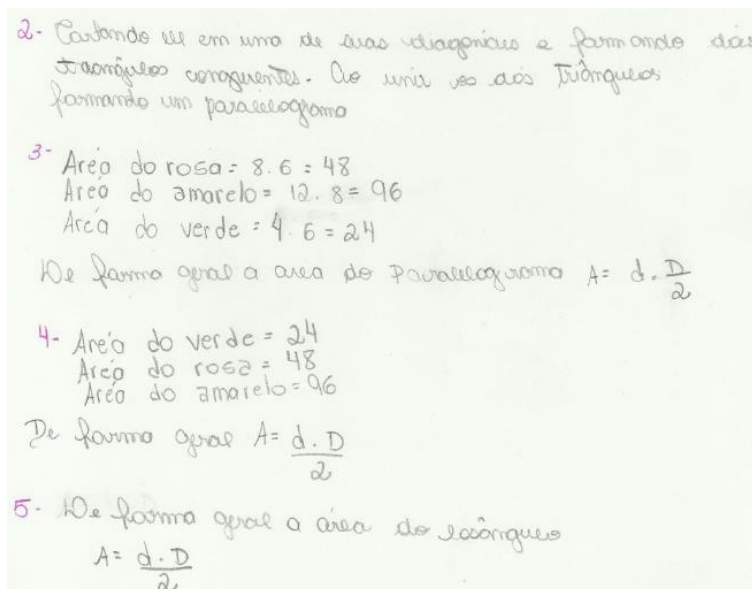 2- Cortando ele em uma de suas diagonais e formando dois
triangulos congruentes. Ao unir os dois triângulos
formando um paralelogramo
3- Area do rosa = 8 . 6 = 48
Area do amarelo = 12 . 8 = 96
Area do verde = 4 . 6 = 24
De forma geral a area do Paralelogramo A = d . D/2
4- Area do verde = 24
Area do rosa = 48
Area do amarelo = 96
De forma geral A = d . D/2
5- De forma geral a área do losângulo
A = d . D/2